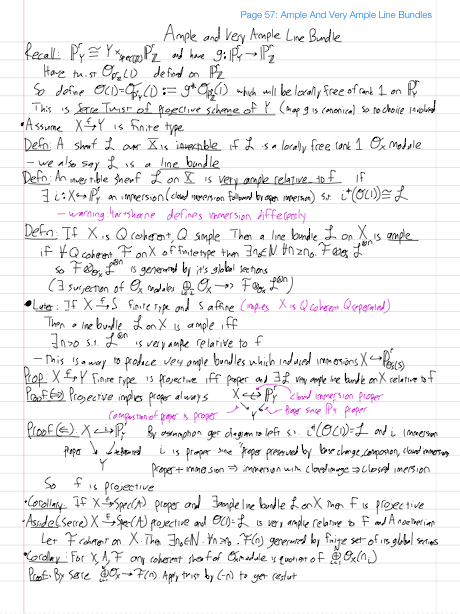 Page 57: Ample And Very Ample Line Bundles
Ample and Very Ample Line Bundle
Recall: ℙ^r_Y ≅ Y ×_{Spec(ℤ)} ℙ^r_ℤ and have g: ℙ^r_Y → ℙ^r_ℤ
Have twist O_{ℙ^r_ℤ}(1) defined on ℙ^r_ℤ
So define O(1) = O_{ℙ^r_Y}(1) := g* O_{ℙ^r_ℤ}(1) which will be locally free of rank 1 on ℙ^r_Y
This is Serre Twist of projective scheme of Y (map g is canonical) so no choice involved
• Assume X →^f Y is finite type
Defn: A sheaf L over X is invertible if L is a locally free rank 1 O_X module
– we also say L is a line bundle
Defn: An invertible sheaf L on X is very ample relative to f if
∃ i: X ↪ ℙ^r_Y an immersion (closed immersion followed by open immersion) s.t. i*(O(1)) ≅ L
– warning Hartshorne defines immersion differently
Defn: If X is Qcoherent, Q simple Then a line bundle L on X is ample
if ∀ Qcoherent F on X of finite type then ∃n₀∈ℕ ∀n≥n₀ F⊗_{O_X} L^{⊗n}
so F⊗_{O_X} L^{⊗n} is generated by it's global sections
(∃ surjection of O_X modules ⊕ O_X ↠ F⊗_{O_X} L^{⊗n})
• Later: If X →^f S finite type and S affine (implies X is Qcoherent Qseparated)
Then a line bundle L on X is ample iff
∃n>0 s.t. L^{⊗n} is very ample relative to f
– This is a way to produce very ample bundles which induced immersions X ↪ ℙ
Prop: X →^f Y finite type is projective iff proper and ∃ L very ample line bundle on X relative to f
Proof(⇒) Projective implies proper always X ↪ ℙ^r_Y closed immersion proper
Composition of proper is proper Y Proper since ℙ^r_Y proper
Proof(⇐) X ↪ ℙ^r_Y By assumption get diagram to left s.t. i*(O(1)) = L and i immersion
proper Y separated i is proper since proper preserved by base change, composition, closed immersion
proper + immersion ⇒ immersion with closed image ⇒ closed imersion
So f is projective
• Corollary: If X →^f Spec(A) proper and ∃ ample line bundle L on X then f is projective
• Aside (Serre) X →^f Spec(A) projective and O(1) = L is very ample relative to f and A noetherian
Let F coherent on X. Then ∃n₀∈ℕ ∀n≥n₀ F(n) generated by finite set of its global sections
• Corollary: For X, A, F any coherent sheaf of O_X module is quotient of ⊕ O_X(n_i)
Proof: By Serre ⊕O_X → F(n). Apply twist by (-n) to get result